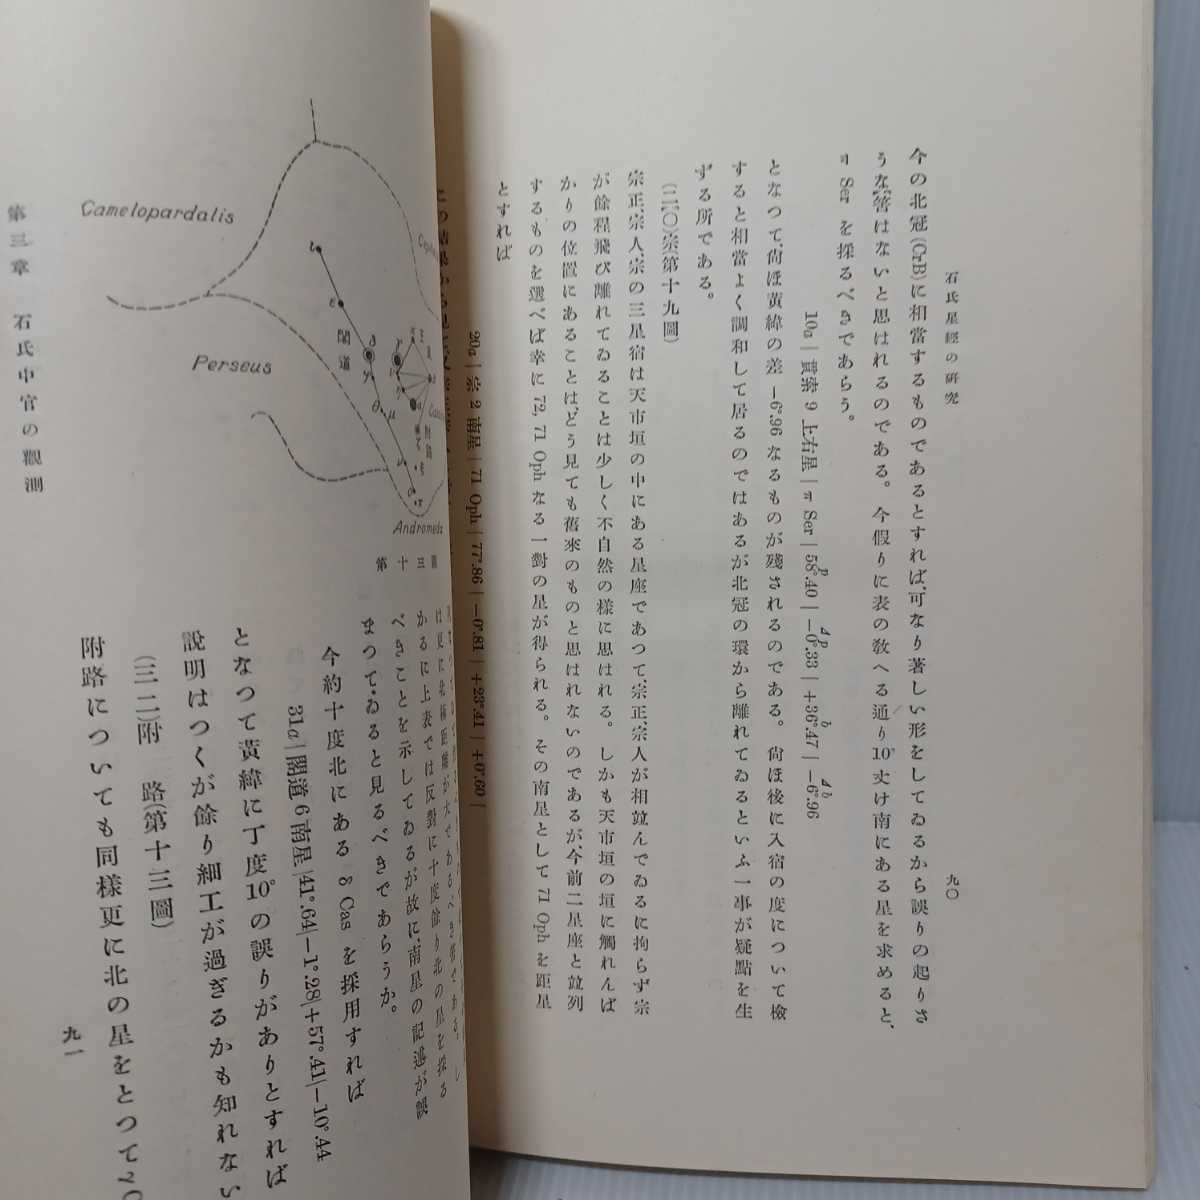 石氏星經の硏究
九〇
今の北冠(CrB)に相當するものであるとすれば、可なり著しい形をしてゐるから誤りの起りさ
うな筈はないと思はれるのである。今假りに表の敎へる通り10°丈け南にある星を求めると、
π Ser を採るべきであらう。
p Δp b Δb
10a | 貫索 9 上右星 | π Ser | 58°.40 | −0°.33 | +36°.47 | −6°.96
となつて、尙ほ黃緯の差 −6°.96 なるものが殘されるのである。尙ほ後に入宿の度について檢
すると相當よく調和して居るのではあるが北冠の環から離れてゐるといふ一事が疑點を生
ずる所である。
(二〇)宗(第十九圖)
宗正、宗人、宗の三星宿は天市垣の中にある星座であつて、宗正、宗人が相竝んでゐるに拘らず宗
が餘程飛び離れてゐることは少しく不自然の樣に思はれる。しかも天市垣の垣に觸れんば
かりの位置にあることは、どう見ても舊來のものと思はれないのであるが、今前二星座と竝列
するものを選べば幸に 72, 71 Oph なる一對の星が得られる。その南星として 71 Oph を距星
とすれば
20a | 宗 2 南星 | 71 Oph | 77°.86 | −0°.81 | +23°.41 | +0°.60 |
Camelopardalis
Perseus
Andromeda
閣道
附路
第十三圖
かるに上表では反對に十度餘り北の星を採る
べきことを示してゐるが故に、南星の記述が誤
まつてゐると見るべきであらうか。
今約十度北にある δ Cas を採用すれば
31a | 閣道 6 南星 | 41°.64 | −1°.28 | +57°.41 | −10°.44
となつて黃緯に丁度10°の誤りがありとすれば
說明はつくが餘り細工が過ぎるかも知れない
(三二)附 路(第十三圖)
附路についても同樣更に北の星をとつて
第三章 石氏中官の觀測
九一